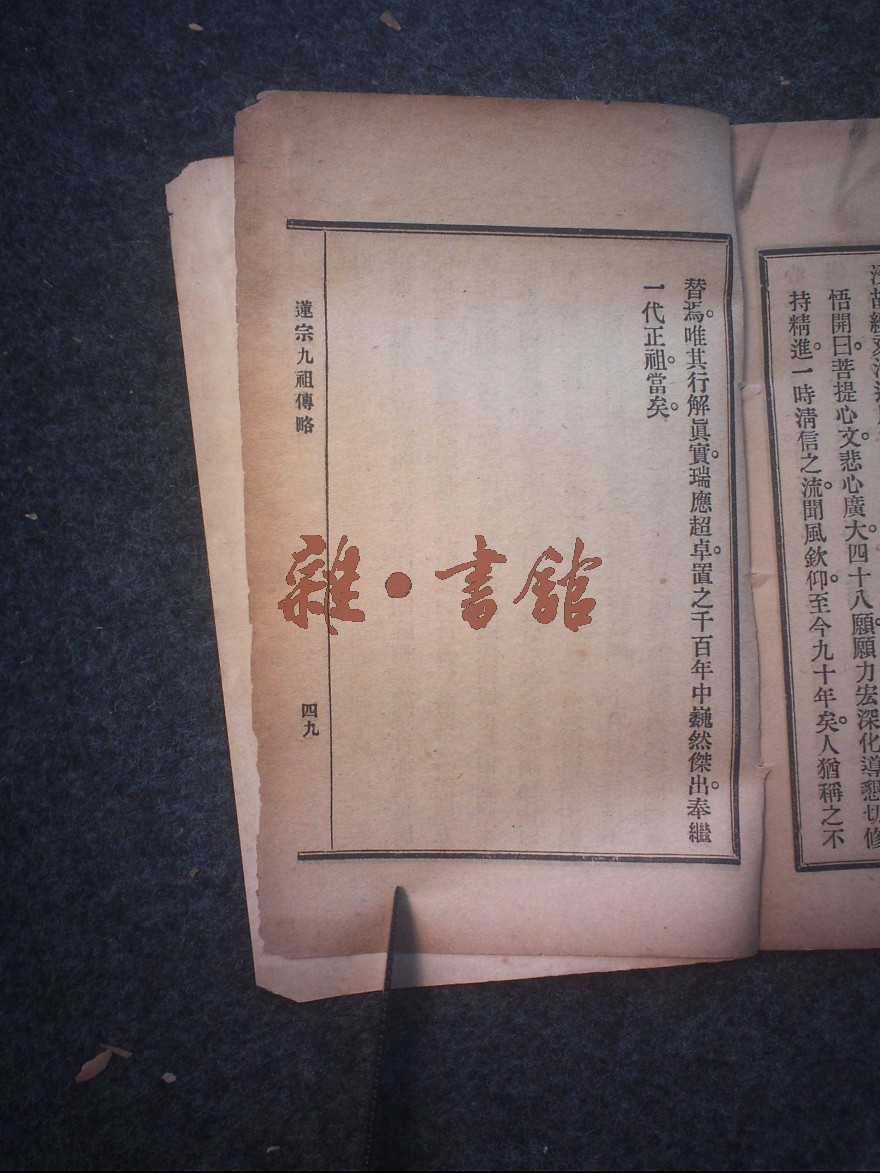 悟開曰。菩提心文。悲心廣大。四十八願。願力宏深。化導懇切。修
持精進。一時淸信之流。聞風欽仰。至今九十年矣。人猶稱之不
替焉。唯其行解眞實。瑞應超卓。置之千百年中。巍然傑出。奉繼
一代正祖。當矣。
蓮宗九祖傳略
四九
雜·書館